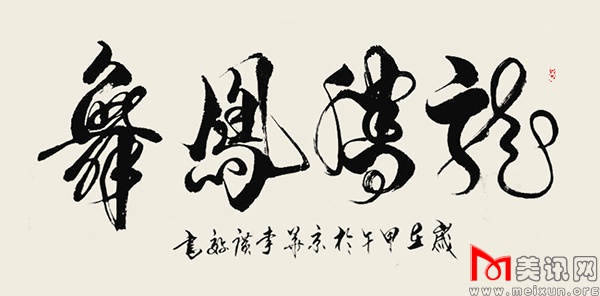 龍騰鳳舞
歲在甲午於京華李書
美讯网
www.meixun.org